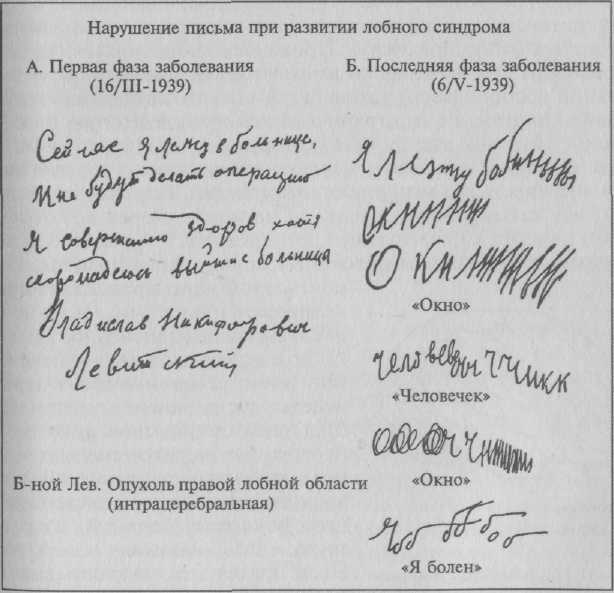 Нарушение письма при развитии лобного синдрома
А. Первая фаза заболевания
(16/III-1939)
Сейчас я лежу в больнице,
мне будут делать операцию
Я совершенно здоров хотя
скоро надеюсь выйти с больница
Владислав Никифорович
Левитский
Б-ной Лев. Опухоль правой лобной области
(интрацеребральная)
Б. Последняя фаза заболевания
(6/V-1939)
Я лежу
«Окно»
«Человечек»
«Окно»
«Я болен»